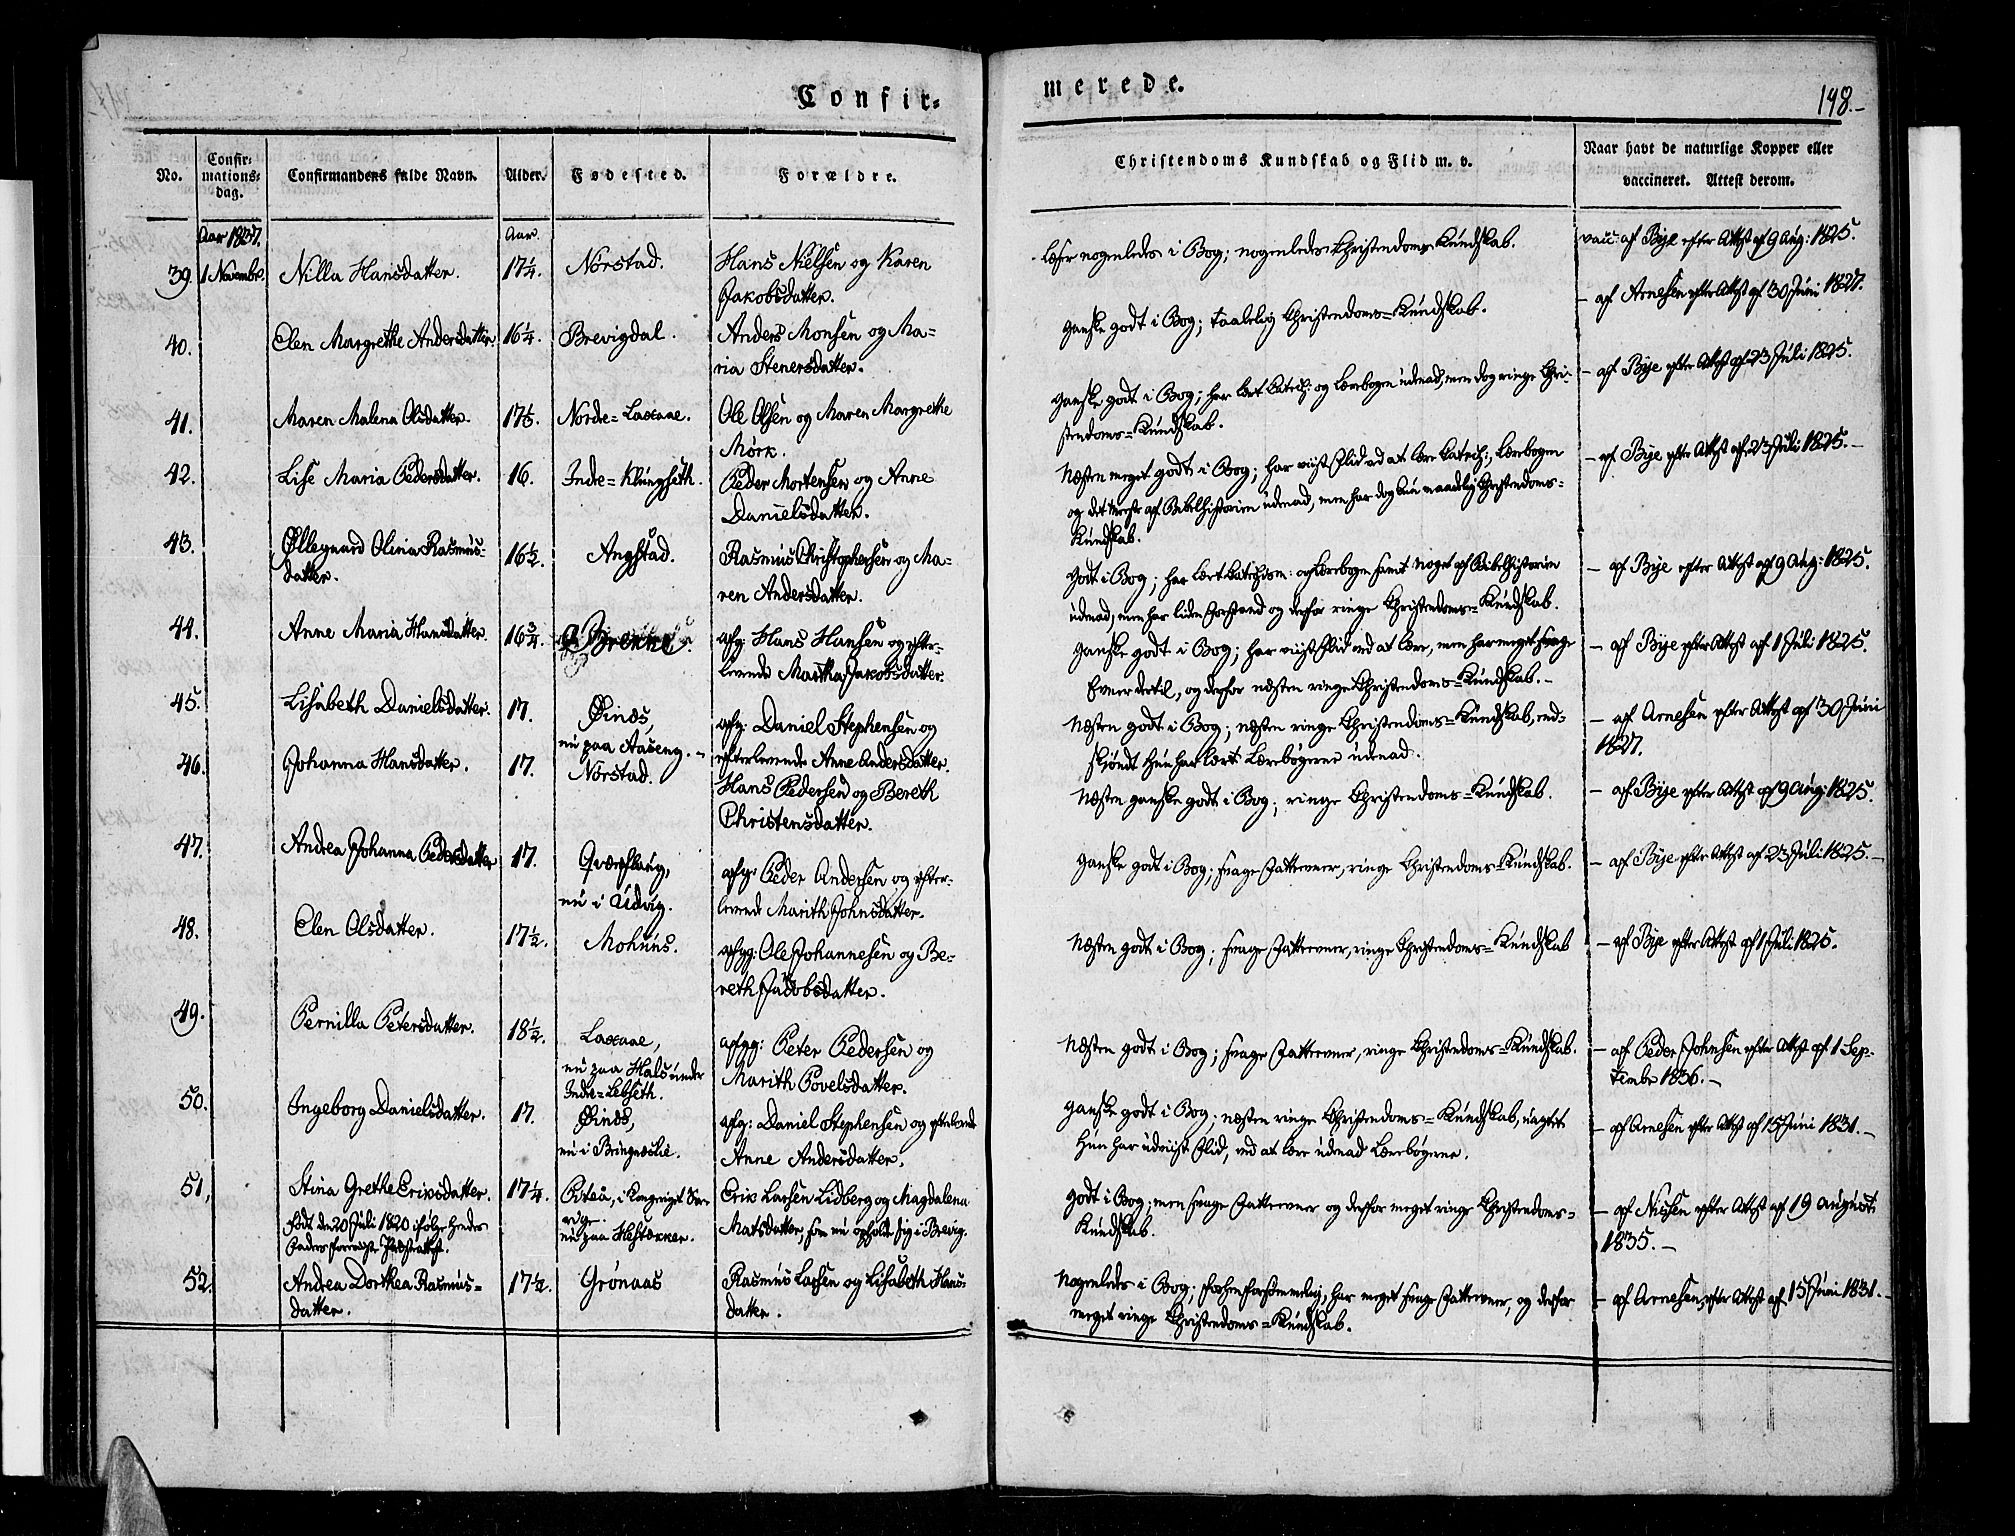 Confir-
merede.
198.-
No.
Confir-
mations-
dag.
Confirmandens fulde Navn.
Alder.
Fødested.
Forældre.
Christendoms Kundskab og Flid m. v.
Naar havt de naturlige Kopper eller
vaccineret. Attest derom.
Aar 1837.
Aar.
39. 1 Novembr. Nilla Hansdatter. 17¼. Nørstad. Hans Nielsen og Karen
Jakobsdatter.
læser nogenledes i Bog; nogenledes Christendoms Kundskab.
vacc. af Bye efter Attest af 9 Aug: 1825.
40. Elen Margrethe Andersdatter. 16¼. Brevigdal. Anders Monsen og Ma-
ria Stenersdatter.
ganske godt i Bog; taalelig Christendoms-Kundskab.
- af Arnesen efter Attest af 30 Juni 1827.
41. Maren Malena Olsdatter. Nordre-Laxaae. Ole Olsen og Maren Margrethe
Mörk.
ganske godt i Bog; har lært Catech: og Lærebogen udenad, men dog ringe Chri-
stendoms-Kundskab.
- af Bye efter Attest af 23 Juli 1825.
42. Lise Maria Pedersdatter. 16. Indre-Klungseth. Peder Mortensen og Anne
Danielsdatter.
Næsten meget godt i Bog; har viist Flid ved at lære Catech:, Lærebogen
og det meste af Bibelhistorien udenad, men har dog kun maadelig Christendoms-
Kundskab.
- af Bye efter Attest af 23 Juli 1825.-
43. Øllegaard Olina Rasmus-
datter.
16½. Angstad. Rasmus Christophersen og Ma-
ren Andersdatter.
godt i Bog; har lært Catechism: og Lærebogen samt noget af Bibelhistorien
udenad, men har liden Forstand og derfor ringe Christendoms-Kundskab.
- af Bye efter Attest af 9 Aug: 1825.
44. Anne Maria Hansdatter. 16¾. Brekke. afg: Hans Hansen og efter-
levende Martha Jakobsdatter.
ganske godt i Bog; har viist Flid ved at lære, men har meget svage
Evner dertil, og derfor næsten ringe Christendoms-Kundskab.-
- af Bye efter Attest af 1 Juli 1825.
45. Lisabeth Danielsdatter. 17. Øinæs,
nu paa Aaseng.-
afg: Daniel Stephensen og
efterlevende Anne Andersdatter.
Næsten godt i Bog; næsten ringe Christendoms-Kundskab, end-
skjöndt Hun har lært Lærebøgerne udenad.
- af Arnesen efter Attest af 30 Juni
1827.
46. Johanna Hansdatter. 17. Nørstad. Hans Pedersen og Bereth
Christensdatter.
Næsten ganske godt i Bog; ringe Christendoms-Kundskab.
- af Bye efter Attest af 9 Aug: 1825.
47. Andrea Johanna Pedersdatter 17. Qværflaug,
nu i Udvig.
afg: Peder Andersen og efter-
levende Marith Johnsdatter.
ganske godt i Bog; svage Fatteevner, ringe Christendoms-Kundskab.
- af Bye efter Attest af 23 Juli 1825.-
48. Elen Olsdatter. 17½. Mohuus. afgg: Ole Johannesen og Be-
reth Jacobsdatter.
Næsten godt i Bog; svage Fatteevner, ringe Christendoms-Kundskab
- af Bye efter Attest af 1 Juli 1825.
49. Pernilla Petersdatter. 18½. Laxaae,
nu paa Hals under
Indre-Lebseth.
afgg: Peter Pedersen og
Marith Povelsdatter.
Næsten godt i Bog; svage Fatteevner, ringe Christendoms-Kundskab.
- af Peder Johnsen efter Attest af 1 Sep-
tember 1836.-
50. Ingeborg Danielsdatter. 17. Øinæs,
nu i Bringeslie.
afg: Daniel Stephensen og efterlevende
Anne Andersdatter.
ganske godt i Bog; næsten ringe Christendoms-Kundskab, uagtet
Hun har udviist Flid, ved at lære udenad Lærebøgerne.
- af Arnesen efter Attest af 15 Juni 1831.-
51. Stina Grethe Erixdatter. 17¼. Piteå, i Kongeriget Sve-
rige.
nu paa Hestækker.
Erix Larsen Lidberg og Magdalena
Matsdatter, som nu opholde sig i Brevig.
Født den 20 Juli 1820 ifølge hendes
Faders foreviste Præsteattest.
godt i Bog; men svage Fatteevner og derfor meget ringe Christendoms-
Kundskab.
- af Nissen efter Attest af 19 August
1835.-
52. Andrea Dorthea Rasmus-
datter.
17½. Grönaas Rasmus Larsen og Lisabeth Hans-
datter.
Nogenledes i Bog; har meget svage Fatteevner, og derfor
meget ringe Christendoms-Kundskab.
- af Arnesen, efter Attest af 15 Juni 1831.-